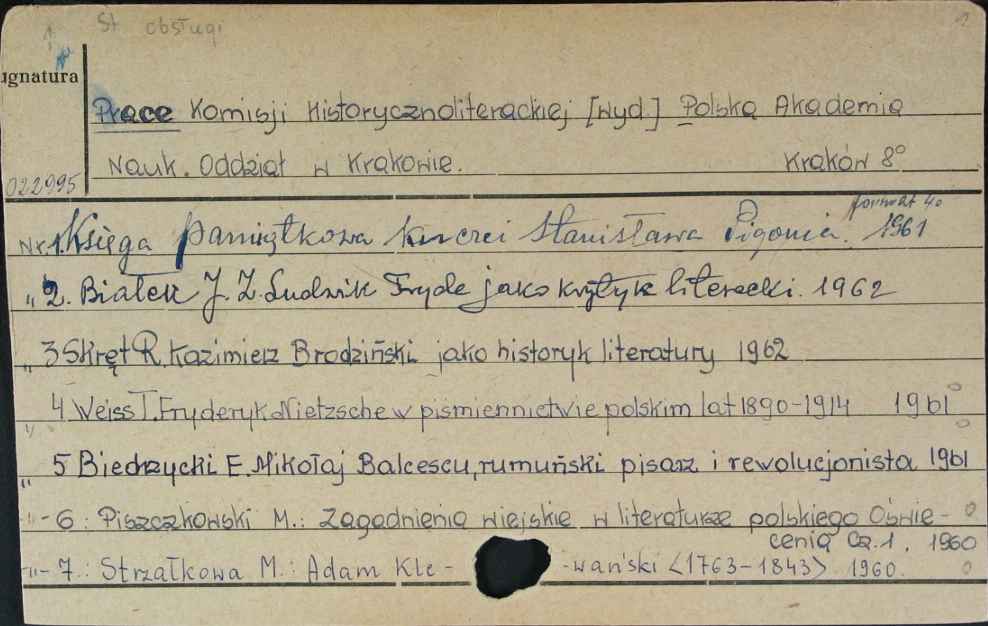 1 St obsługi 1
ignatura
Prace Komisji Historycznoliterackiej [wyd.] Polska Akademia
Nauk. Oddział w Krakowie. Kraków 8°
022995
format 4°
Nr. 1. Księga pamiątkowa ku czci Stanisława Pigonia. 1961
„ 2. Białek J. Z. Ludwik Fryde jako krytyk literacki. 1962
„ 3 Skręt R. Kazimierz Brodziński jako historyk literatury 1962
„ 4 Weiss T. Fryderyk Nietzsche w piśmiennictwie polskim lat 1890-1914 1961
„ 5 Biedrzycki E. Mikołaj Balcescu, rumuński pisarz i rewolucjonista 1961
-„- 6.: Piszczkowski M.: Zagadnienia wiejskie w literaturze polskiego Oświe-
cenia Cz. 1. 1960
-„- 7.: Strzałkowa M.: Adam Kle- -wański <1763-1843> 1960.